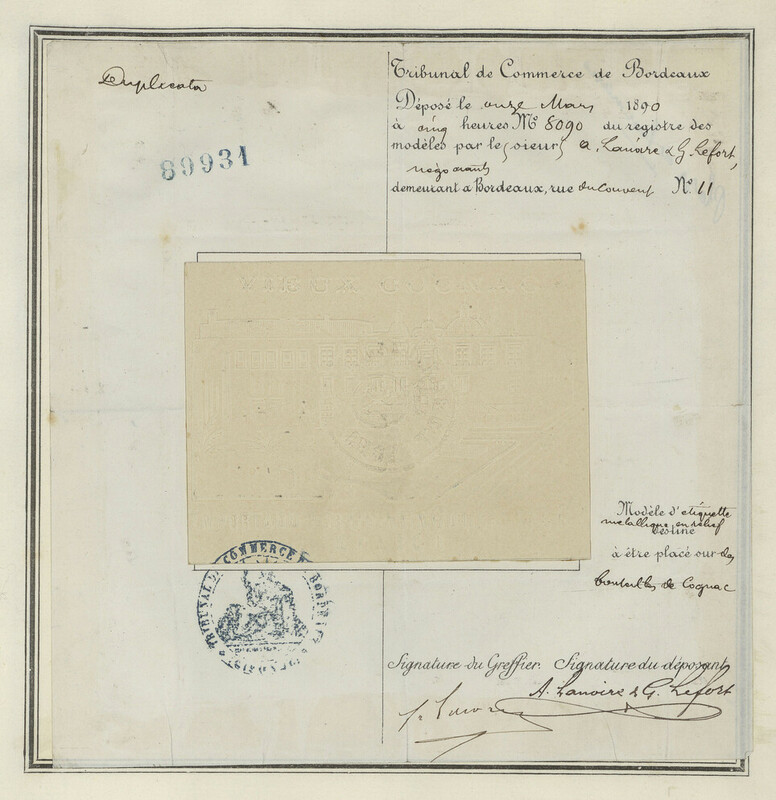 Duplicata
89931
Tribunal de Commerce de Bordeaux
Déposé le onze Mars 1890
à cinq heures N° 8090 du registre des
modèles par le sieurs A. Lanoire & G. Lefort,
négociants
demeurant à Bordeaux, rue du Couvent N° 11
Modèle d'étiquette
métallique en relief
destiné
à être placé sur des
bouteilles de Cognac
TRIBUNAL DE COMMERCE DE BORDEAUX
Signature du Greffier. Signature du déposant
A. Lanoire & G. Lefort